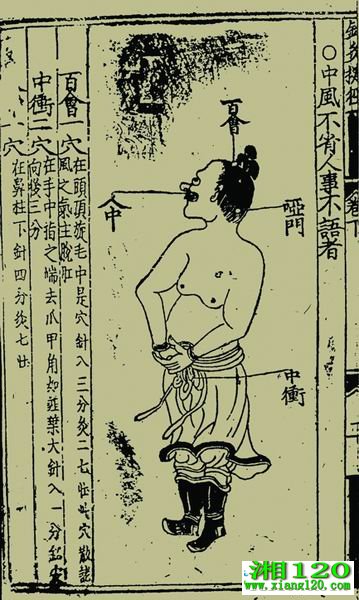 ○中風不省人事不語者
百會
人中
啞門
中衝
百會一穴
在頭頂旋毛中是穴針入三分灸二七壯此穴散諸
風之氣主脫肛
中衝二穴
在手中指之端去爪甲角如韭葉大針入一分
向後三分
穴
在鼻柱下針四分灸七壯
湘120
www.xiang120.com